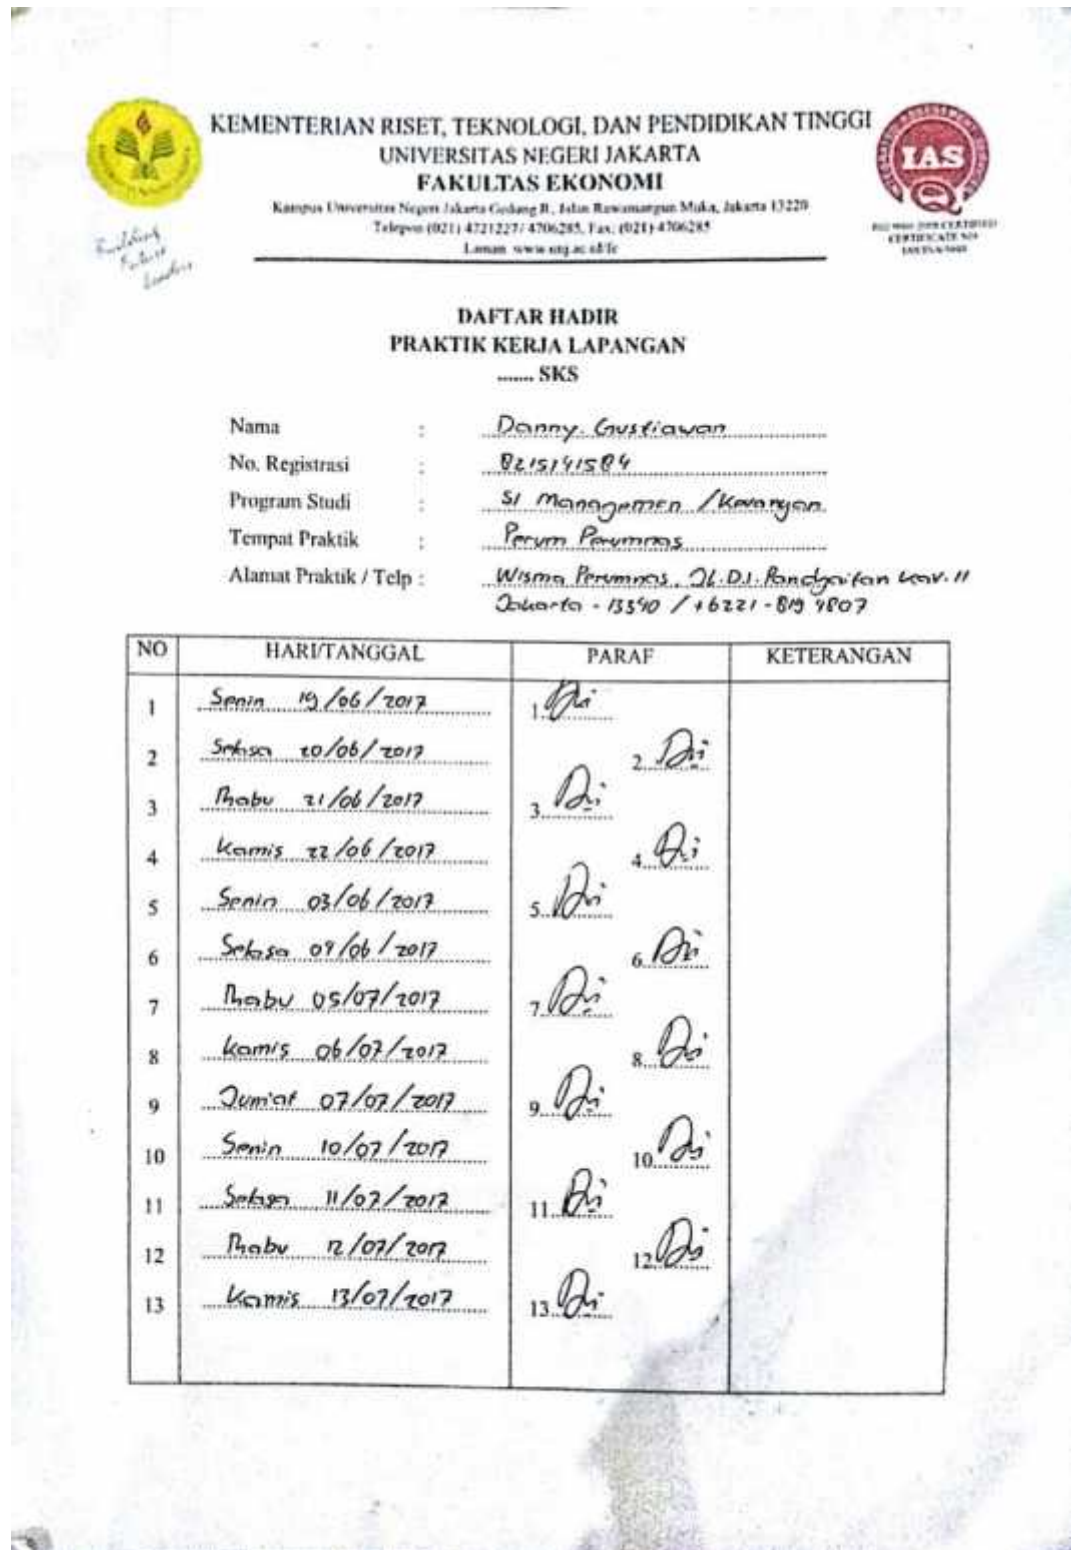 KEMENTERIAN RISET, TEKNOLOGI, DAN PENDIDIKAN TINGGI
UNIVERSITAS NEGERI JAKARTA
FAKULTAS EKONOMI
Kampus Universitas Negeri Jakarta Gedung R, Jalan Rawamangun Muka, Jakarta 13220
Telepon (021) 4721227/ 4706285, Fax: (021) 4706285
Laman: www.unj.ac.id/fe
IAS
Building
Future
Leaders
DAFTAR HADIR
PRAKTIK KERJA LAPANGAN
....... SKS
Nama : Danny Gustiawan
No. Registrasi : 8215141584
Program Studi : S1 Managemen / Keuangan
Tempat Praktik : Perum Perumnas
Alamat Praktik / Telp : Wisma Perumnas, Jl. D.I. Pandjaitan kav. 11
Jakarta - 13340 / +6221 - 819 4807
NO HARI/TANGGAL PARAF KETERANGAN
1 Senin 19/06/2017 1.
2 Selasa 20/06/2017 2.
3 Rhabu 21/06/2017 3.
4 Kamis 22/06/2017 4.
5 Senin 03/06/2017 5.
6 Selasa 04/06/2017 6.
7 Rhabu 05/07/2017 7.
8 Kamis 06/07/2017 8.
9 Jum'at 07/07/2017 9.
10 Senin 10/07/2017 10.
11 Selasa 11/07/2017 11.
12 Rhabu 12/07/2017 12.
13 Kamis 13/07/2017 13.